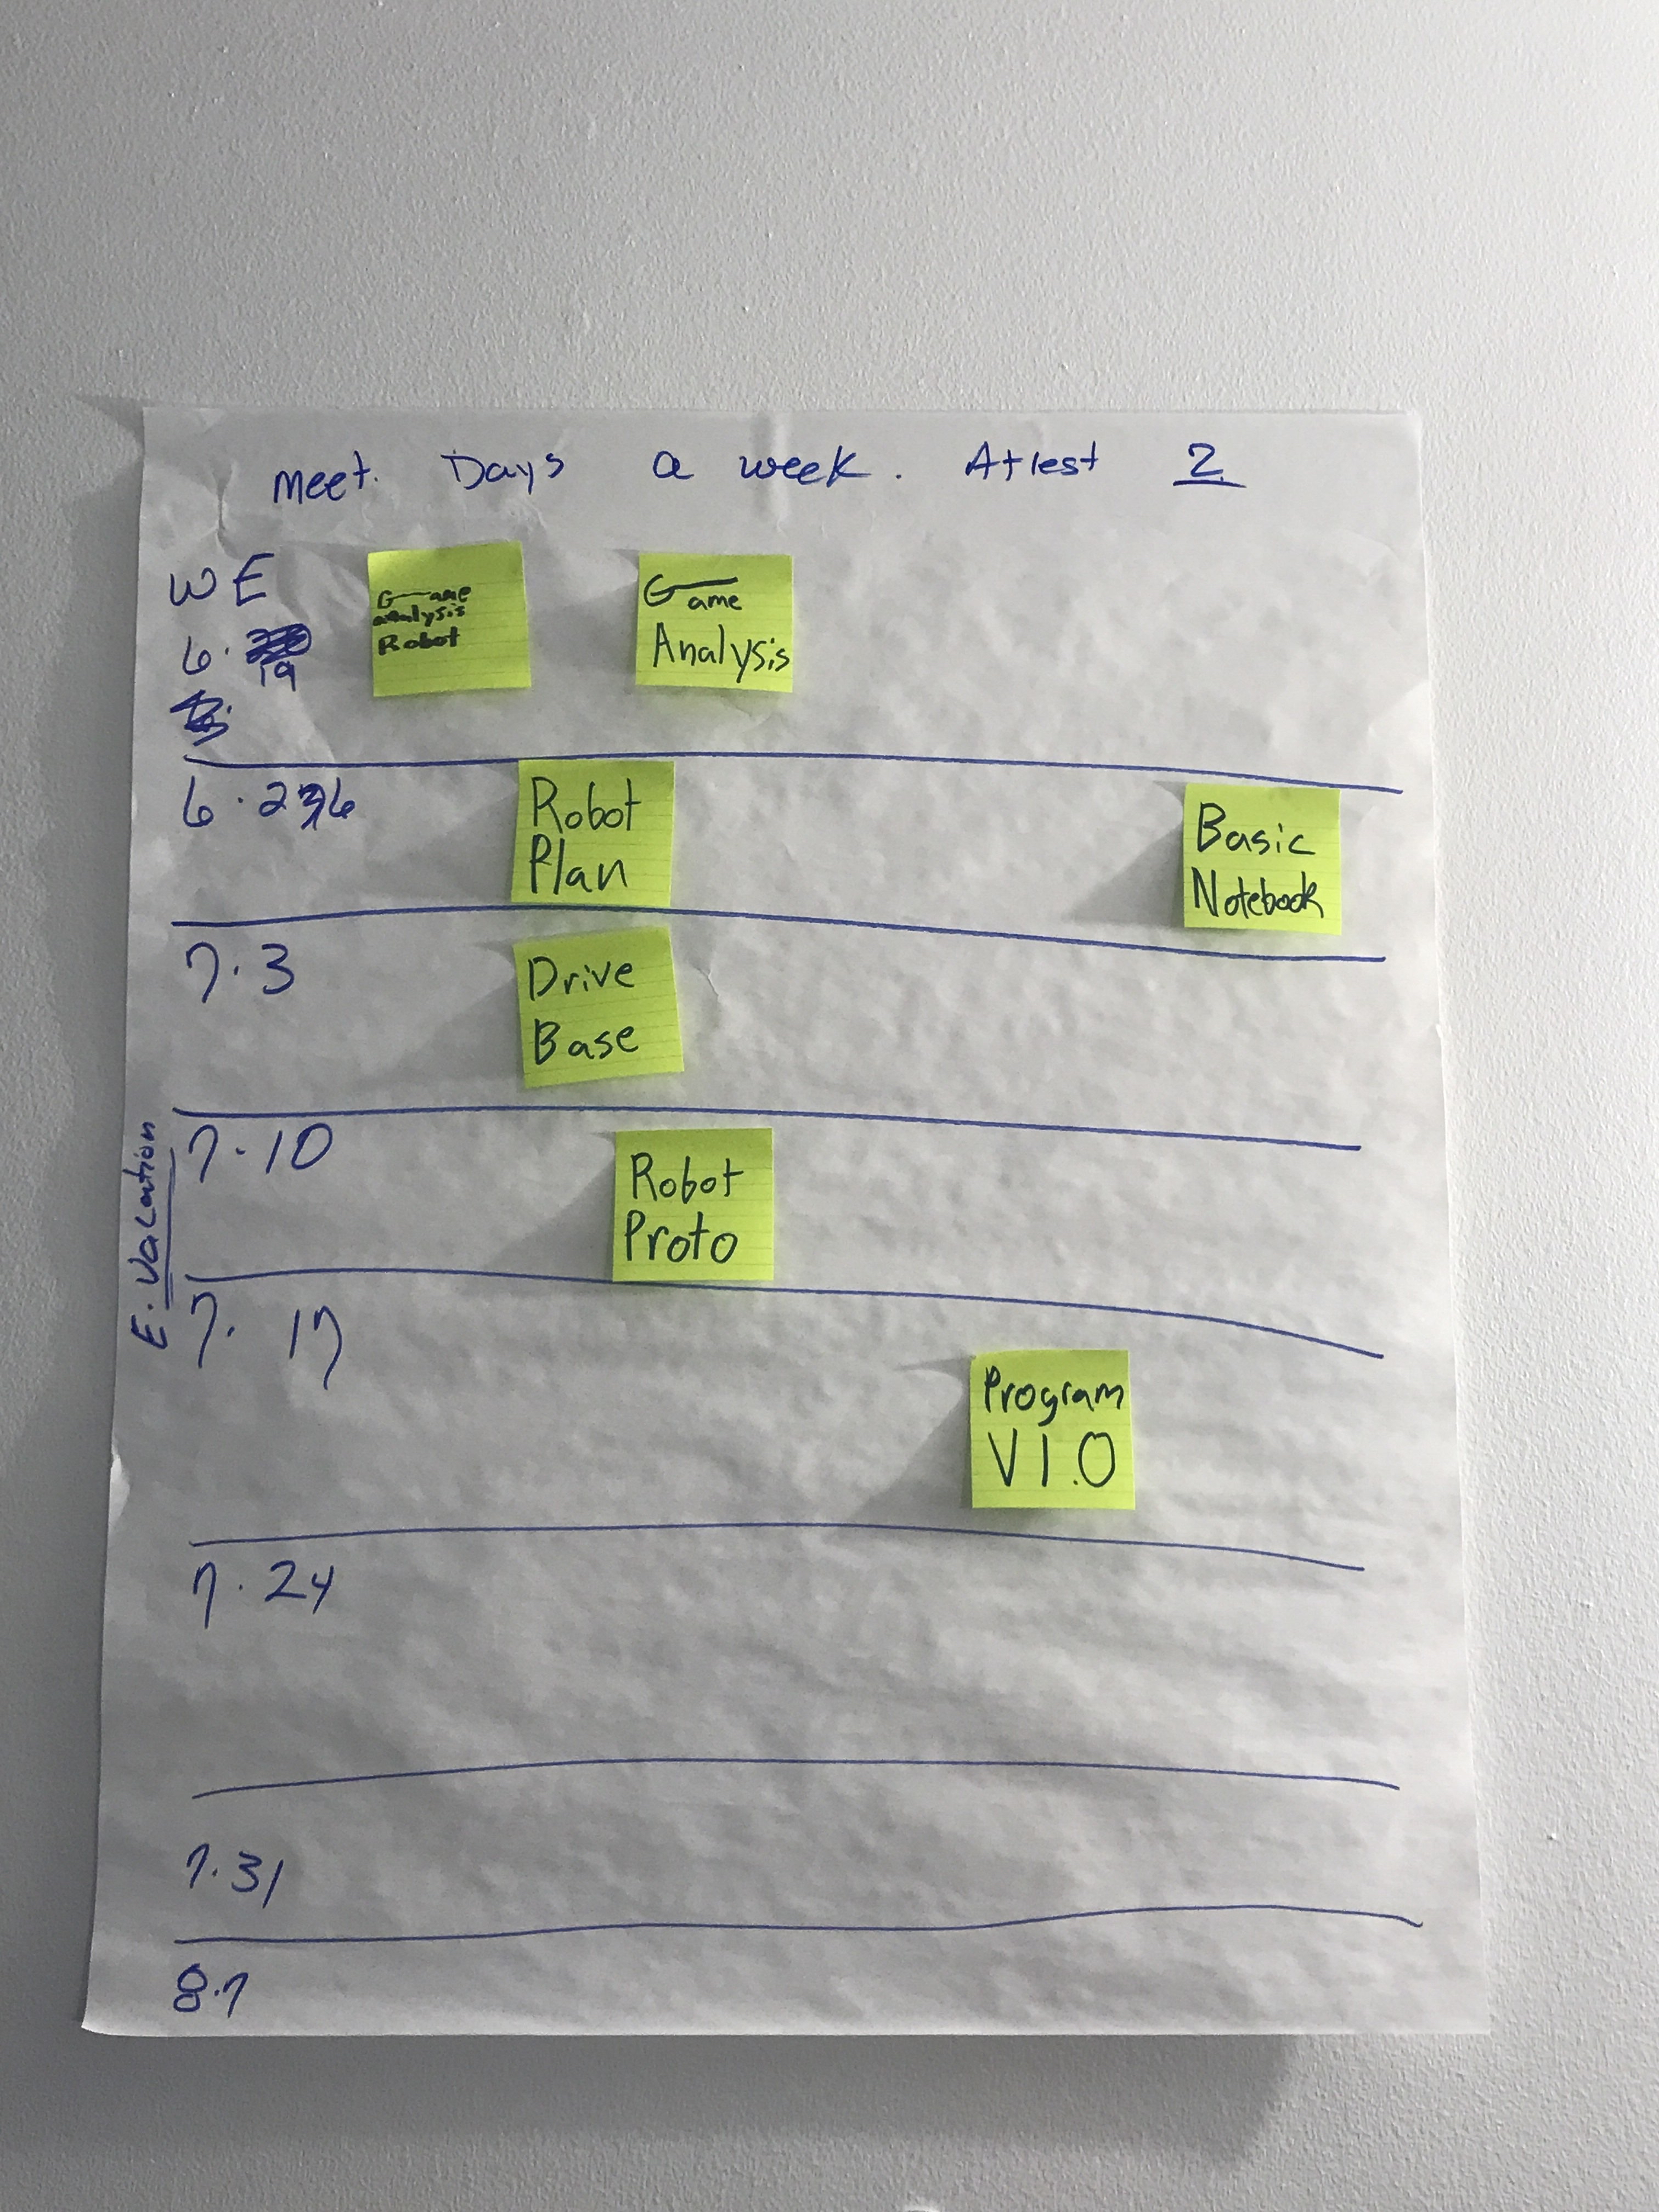 meet. Days a week. Atlest 2
WE
6. 19
Game
analysis
Robot
Game
Analysis
6.26
Robot
Plan
Basic
Notebook
7.3
Drive
Base
E. Vacation
7.10
Robot
Proto
7. 17
Program
V 1.0
7.24
7.31
8.7